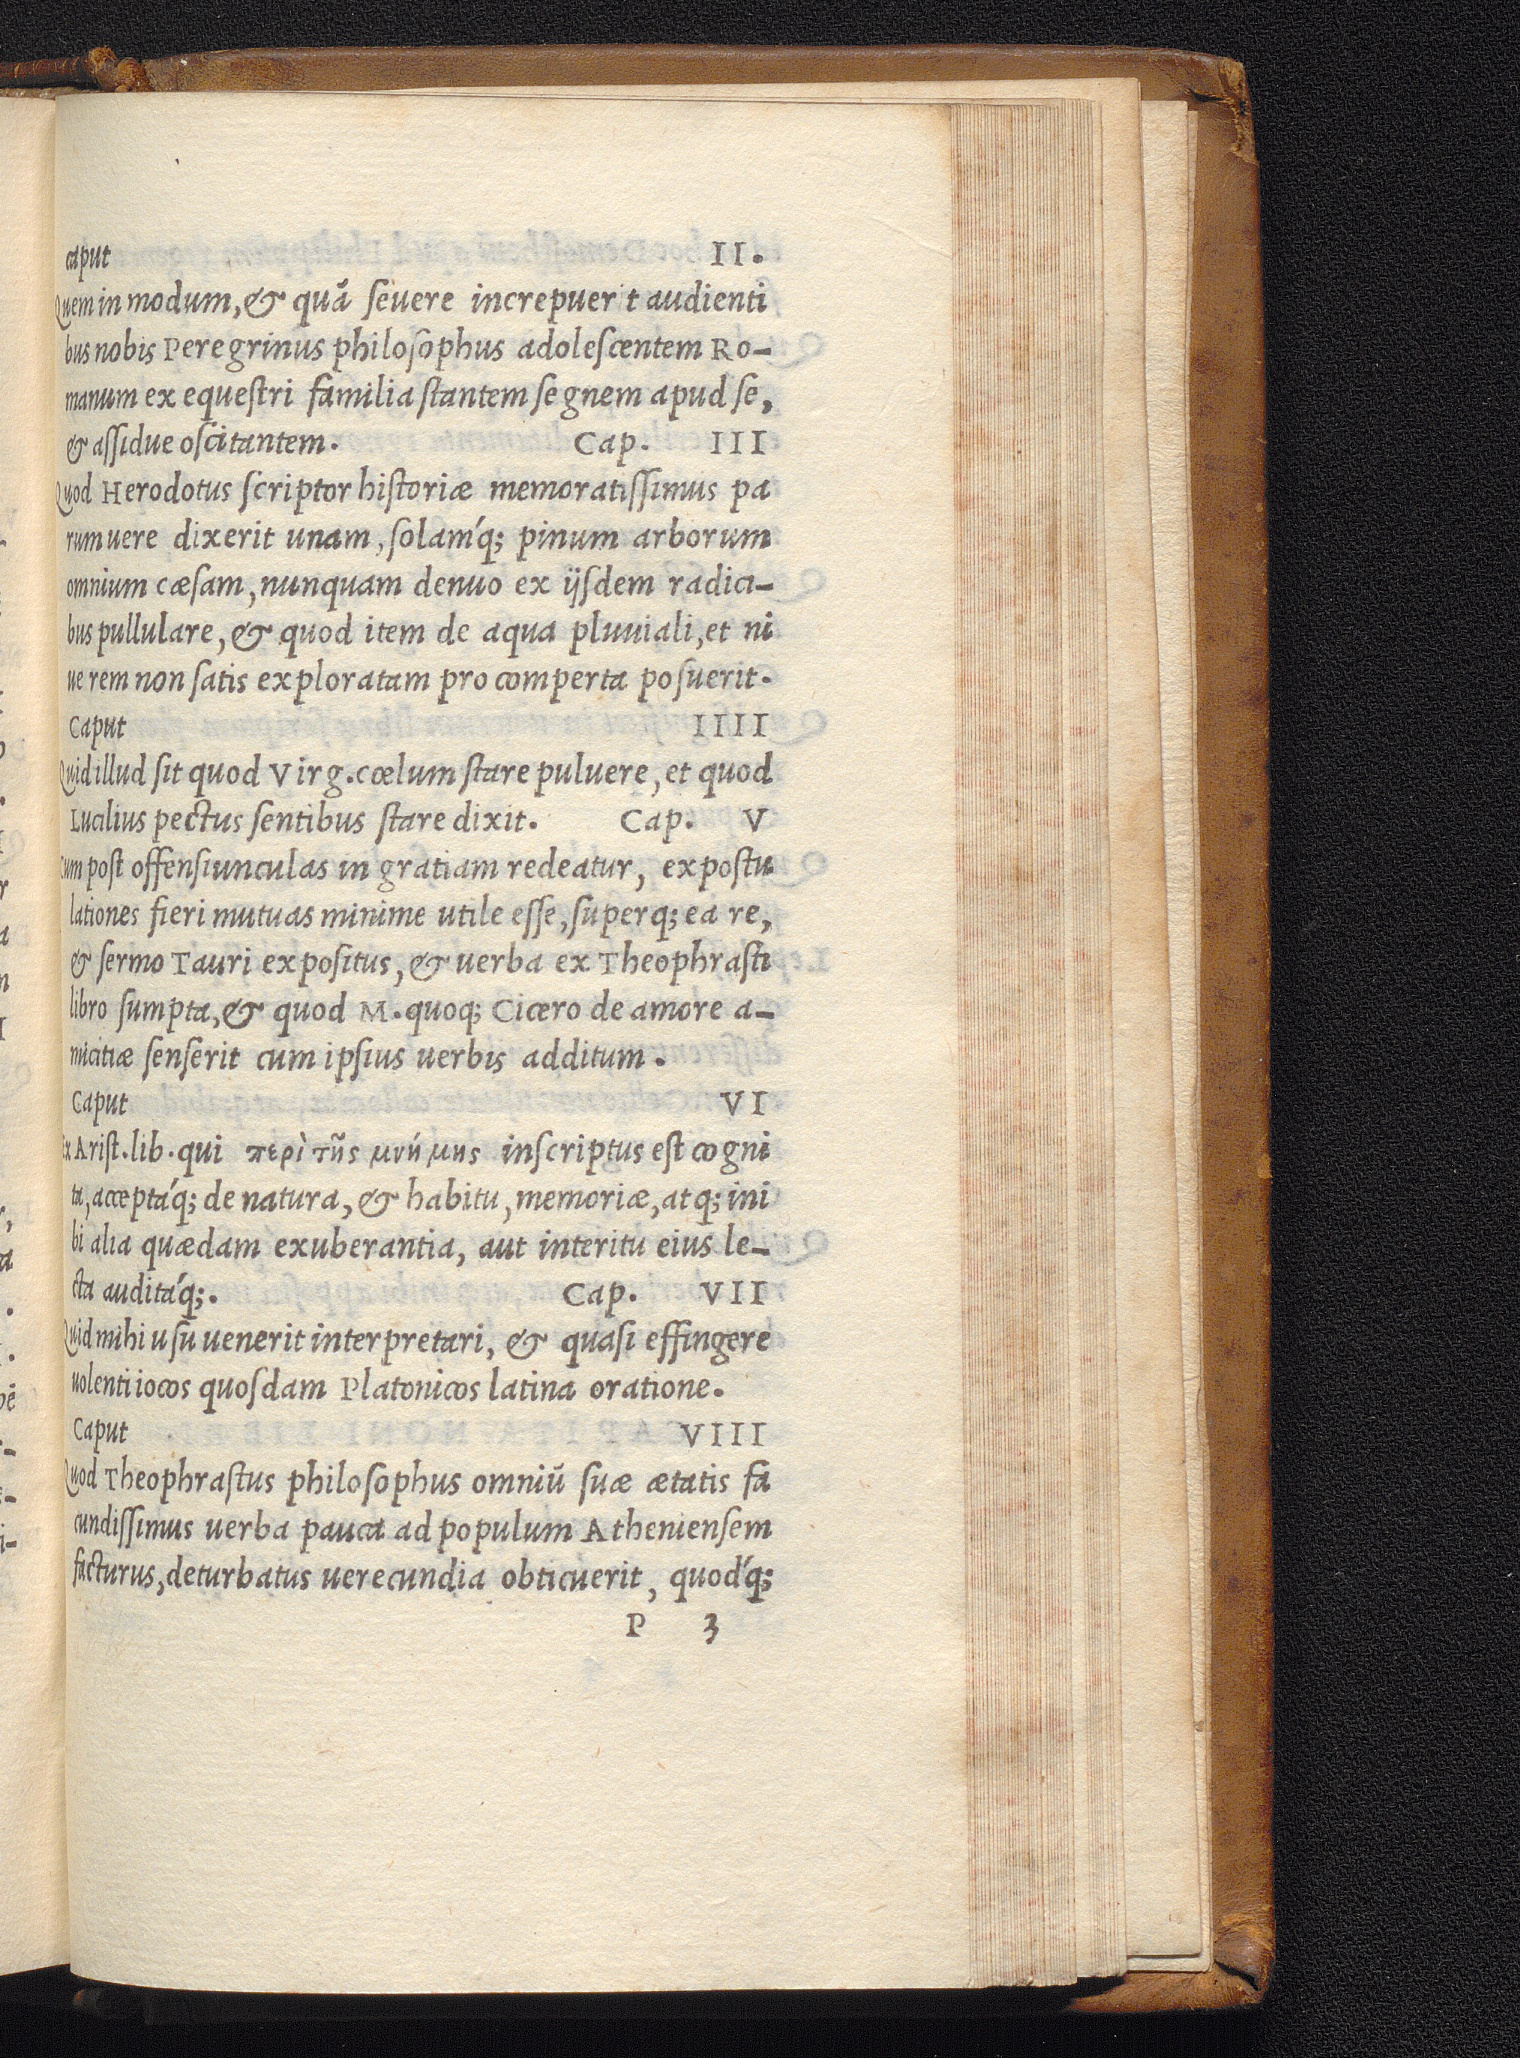 caput II.
Quem in modum, & quā seuere increpuer t audienti
bus nobis Peregrinus philosophus adolescentem Ro-
manum ex equestri familia stantem segnem apud se,
& assidue oscitantem. Cap. III
Quod Herodotus scriptor historiæ memoratissimus pa
rum uere dixerit unam, solamq́; pinum arborum
omnium cæsam, nunquam denuo ex ijsdem radici-
bus pullulare, & quod item de aqua pluuiali, et ni
ue rem non satis exploratam pro comperta posuerit.
Caput IIII
Quid illud sit quod Virg. cœlum stare puluere, et quod
Lucilius pectus sentibus stare dixit. Cap. V
Cum post offensiunculas in gratiam redeatur, expostu
lationes fieri mutuas minime utile esse, superq; ea re,
& sermo Tauri expositus, & uerba ex Theophrasti
libro sumpta, & quod M. quoq; Cicero de amore a-
micitiæ senserit cum ipsius uerbis additum.
Caput VI
Ex Arist. lib. qui περὶ τῆς μνήμης inscriptus est cogni
ta, acceptáq; de natura, & habitu, memoriæ, atq; ini
bi alia quædam exuberantia, aut interitu eius le-
cta auditáq;. Cap. VII
Quid mihi usu uenerit interpretari, & quasi effingere
uolenti iocos quosdam Platonicos latina oratione.
Caput VIII
Quod Theophrastus philosophus omniū suæ ætatis fa
cundissimus uerba pauca ad populum Atheniensem
facturus, deturbatus uerecundia obticuerit, quodq́;
P 3